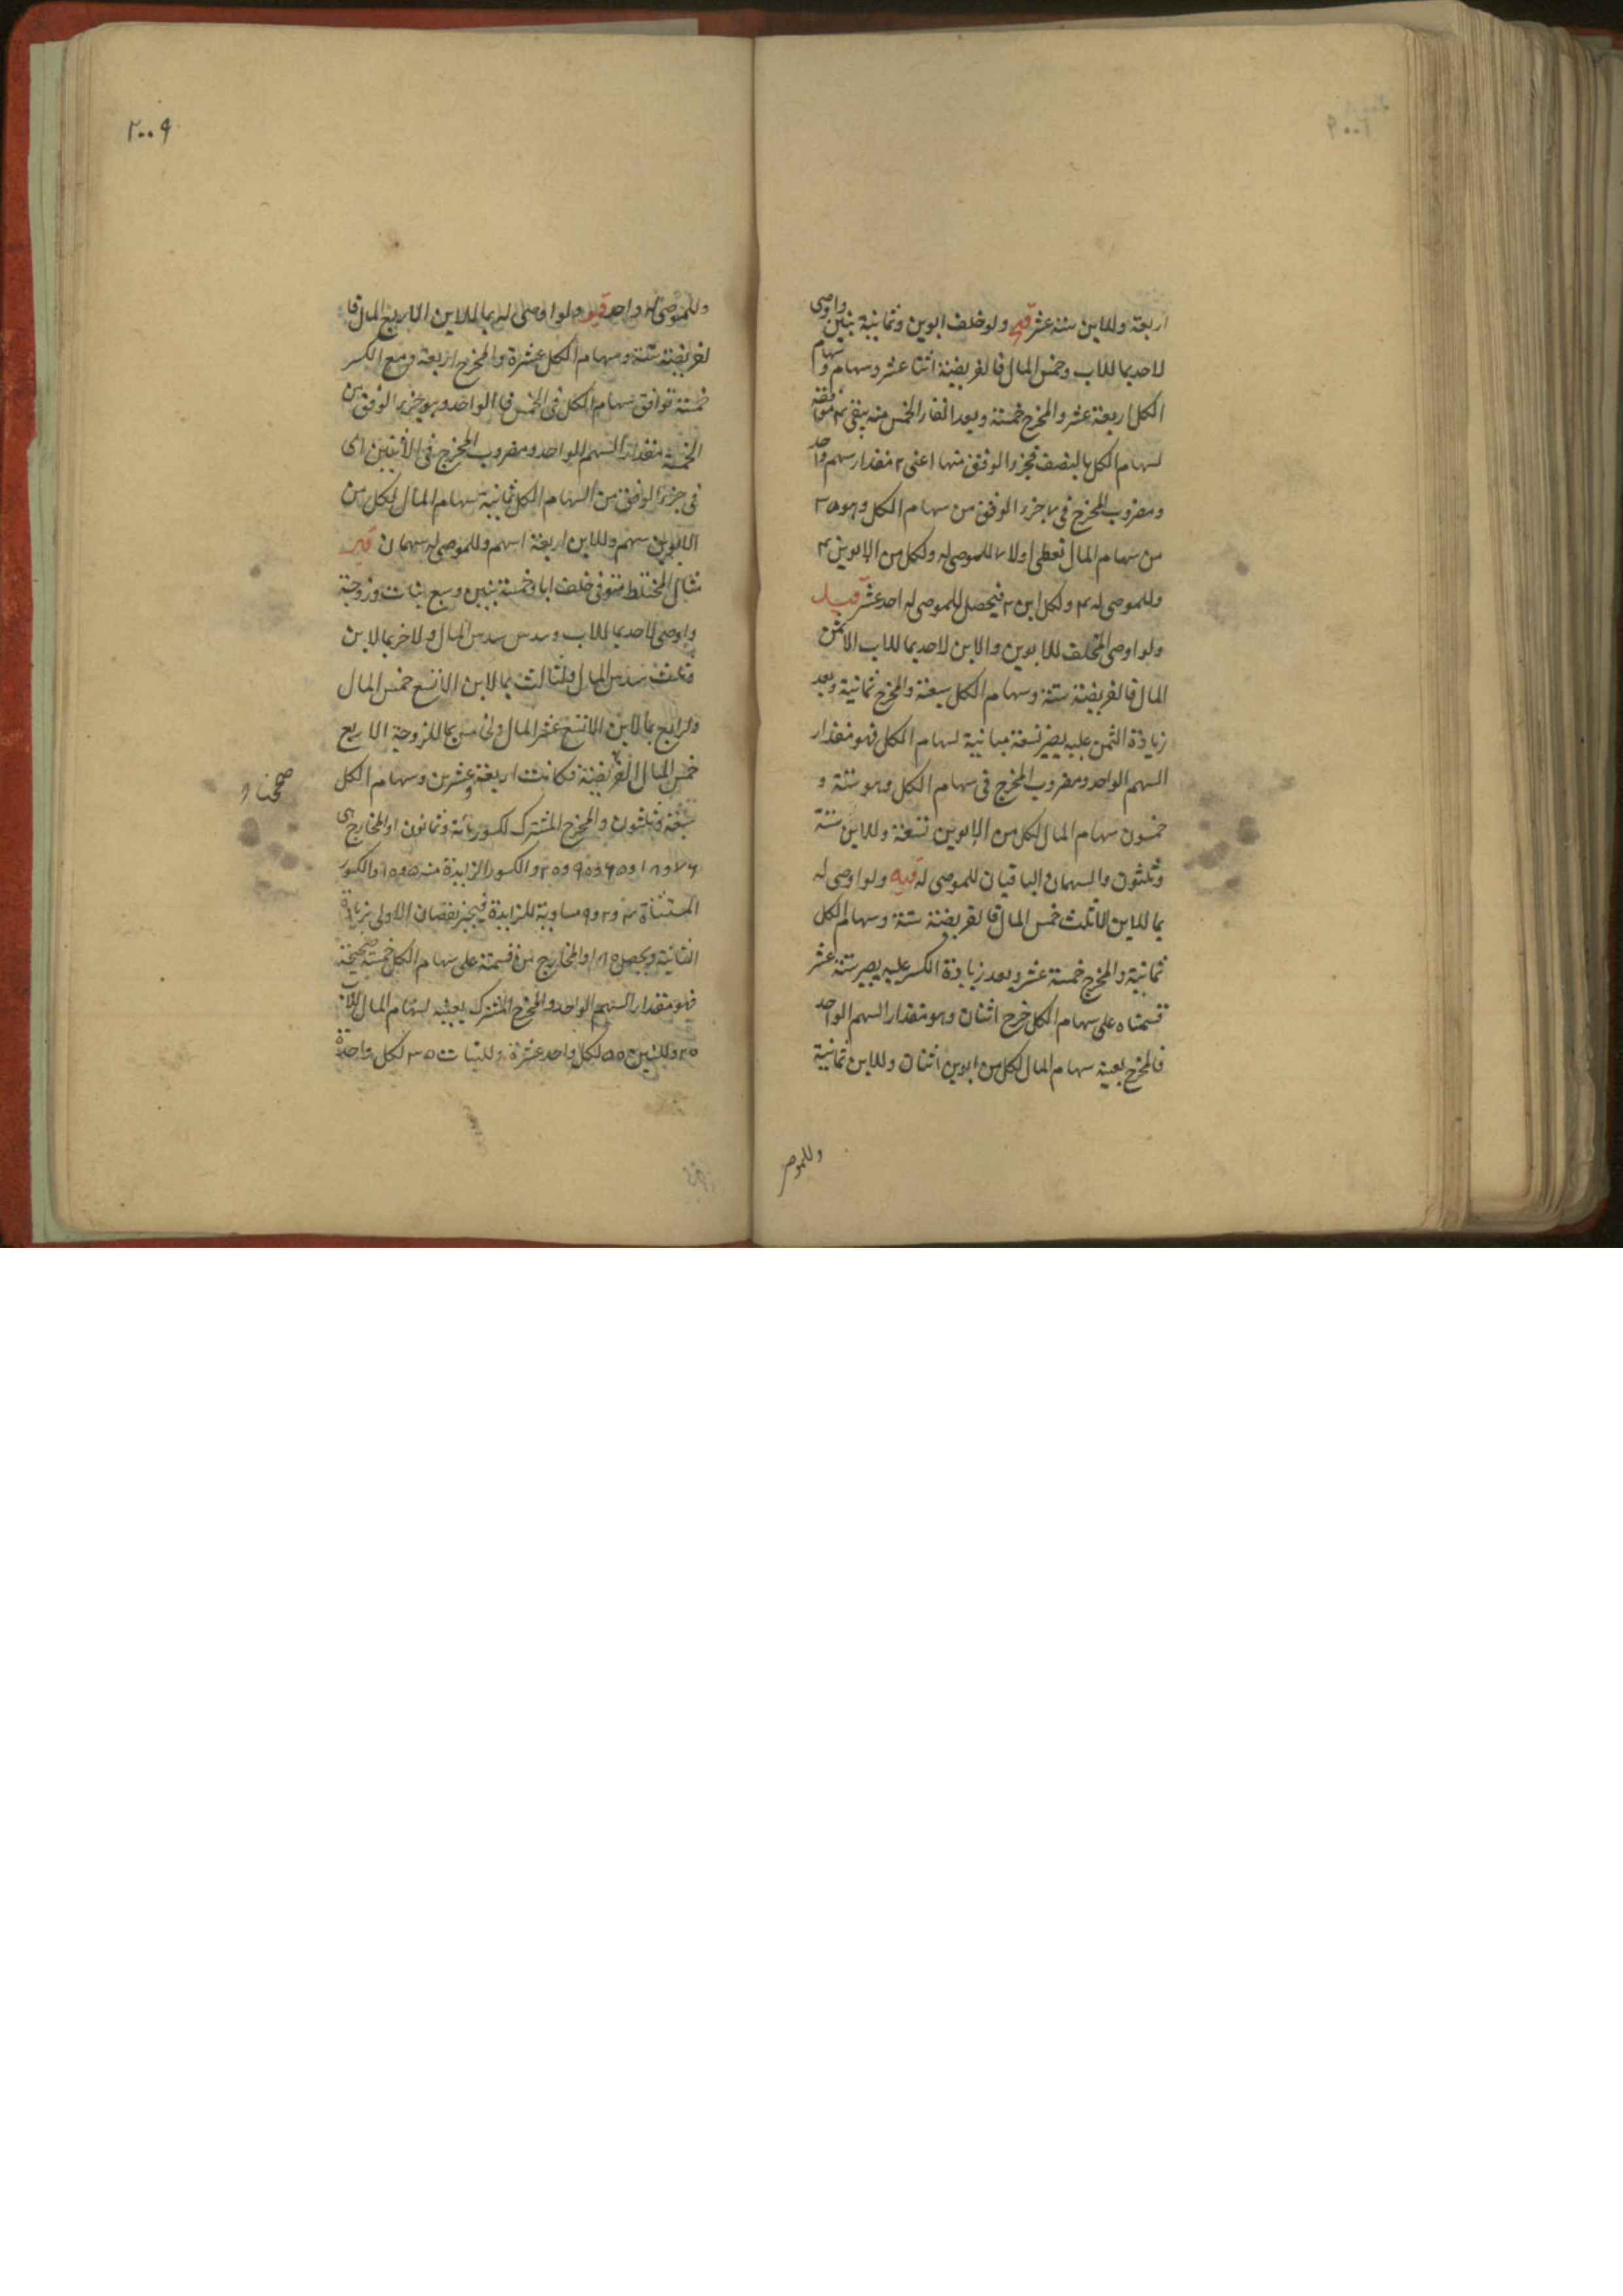 اربعة وللابن ستة عشر قيح ولو خلف ابوين وثمانية بنين واوصى
لاحد بما للاب وخمس المال فالفريضة اثنا عشر وسهام وسهام
الكل اربعة عشر والمخرج خمسة وبعد الخمس منه يبقى ۴ موافقة
لسهام الكل بالنصف فجزء الوفق منها اعنى ۲ مقدار سهم واحد
ومضروب المخرج فى ۷ جزء الوفق من سهام الكل وهو ۳۵
من سهام المال تعطى اولا ۷ للموصى له ولكل من الابوين ۴
وللموصى له ۴ ولكل ابن ۲ فيحصل للموصى له احد عشر
ولو اوصى المخلف للابوين والابن لاحد بما للاب الا ثمن
المال فالفريضة ستة وسهام الكل سبعة والمخرج ثمانية وبعد
زيادة الثمن عليه يصير تسعة مباينة لسهام الكل فهو مقدار
السهم الواحد ومضروب المخرج فى سهام الكل وهو ستة و
خمسون سهام المال لكل من الابوين تسعة وللابن ستة
وثلثون والسهمان الباقيان للموصى له قيه ولو اوصى له
بما للابن الا ثلث خمس المال فالفريضة ستة وسهام الكل
ثمانية والمخرج خمسة عشر وبعد زيادة الكسر عليه يصير ستة عشر
قسمناه على سهام الكل خرج اثنان وهو مقدار السهم الواحد
فالمخرج بعينه سهام المال لكل من ابوين اثنان وللابن ثمانية
وللموصى
۲۰۰۹
وللموصى له واحد قيو ولو اوصى له بما للابن الا ربع المال فا
لفريضة ستة وسهام الكل عشرة والمخرج اربعة ومع الكسر
خمسة توافق سهام الكل فى الخمس فالواحد وهو جزء الوفق من
الخمسة مقدار السهم الواحد ومضروب المخرج فى الاثنين اى
فى جزء الوفق من السهام الكل ثمانية سهام المال لكل من
الابوين سهم وللابن اربعة اسهم وللموصى له سهمان قيز
مثال المختلط متوفى خلف ابا وخمسة بنين وسبع بنات وزوجة
واوصى لاحد بما للاب وسدس سدس المال ولاخر بما لابن
وثلث سدس المال ولثالث بما لابن الا تسع خمس المال
ولرابع بما لابن الا تسع عشر المال ولخامس بما للزوجة الا ربع
خمس المال الفريضة فكانت اربعة وعشرين وسهام الكل
سبعة وثلثون والمخرج المشترك لكسور مائة وثمانون او المخارج اى
والكسور الزايدة منه ۵ و ۱۰ والكسور
المستثناة ۴ و ۲ و ۹ مساوية للزايدة فيجبر نقصان الاولى بزيادة
الثانية ويحصل ۱۸۵ والمخارج من قسمته على سهام الكل خمسة صحيحة
فهو مقدار السهم الواحد والمخرج المشترك بعينه لسهام المال للاب
۲۰ وللبنين ۵۰ لكل واحد عشرة وللبنات ۳۵ لكل واحدة